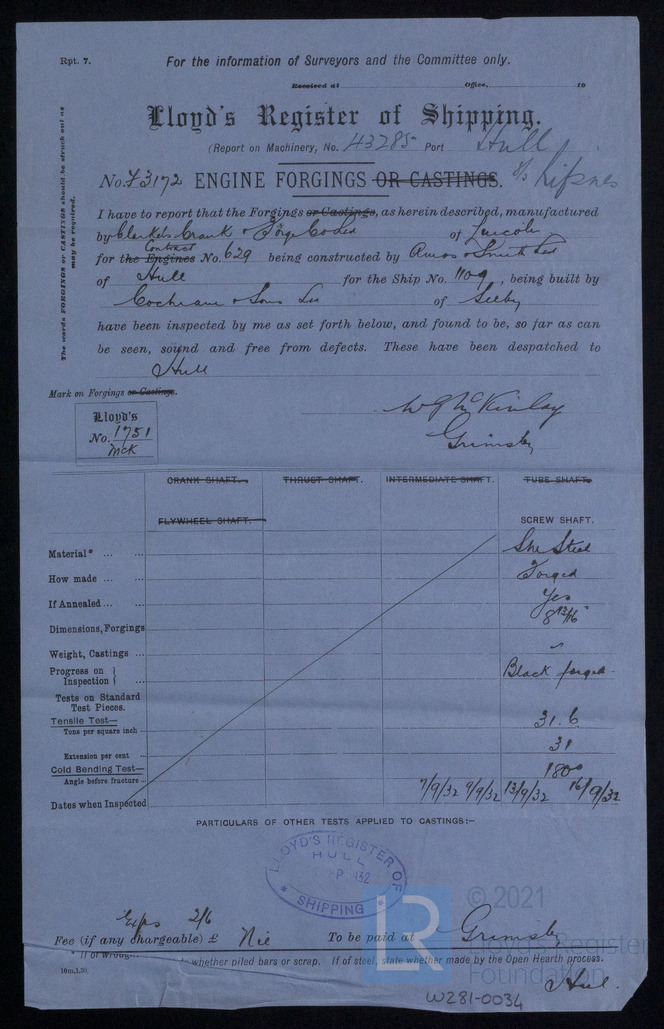 Rpt. 7.
For the information of Surveyors and the Committee only.
Received at Office, 19
Lloyd's Register of Shipping.
(Report on Machinery, No. 43285 Port Hull
No. F3172 ENGINE FORGINGS OR CASTINGS. S/S Lifsnes
The words FORGINGS or CASTINGS should be struck out as may be required.
I have to report that the Forgings or Castings, as herein described, manufactured
by Clarke's Crank & Forge Co Ltd of Lincoln
Contract
for the Engines No. 629 being constructed by Amos & Smith Ltd
of Hull for the Ship No. 1109, being built by
Cochrane & Sons Ld of Selby
have been inspected by me as set forth below, and found to be, so far as can
be seen, sound and free from defects. These have been despatched to
Hull
Mark on Forgings or Castings.
W G McKinlay
Grimsby
Lloyd's
No. 1751
McK
CRANK SHAFT. THRUST SHAFT. INTERMEDIATE SHAFT. TUBE SHAFT.
FLYWHEEL SHAFT. SCREW SHAFT.
Material* ... ... Steel
How made ... ... Forged
If Annealed ... ... Yes
Dimensions, Forgings 8 13/16"
Weight, Castings ... "
Progress on Inspection } ... Black forged
Tests on Standard Test Pieces.
Tensile Test—
Tons per square inch 31.6
Extension per cent .. 31
Cold Bending Test—
Angle before fracture .. 180°
Dates when Inspected 7/9/32 9/9/32 13/9/32 16/9/32
PARTICULARS OF OTHER TESTS APPLIED TO CASTINGS:—
LLOYD'S REGISTER OF SHIPPING
HULL
Exps 2/6
Fee (if any chargeable) £ Nil To be paid at Grimsby
* If of wrough whether piled bars or scrap. If of steel, state whether made by the Open Hearth process.
10m,1,30.
Hul.
W281-0034
© 2021
LR
Lloyd's Register
Foundation